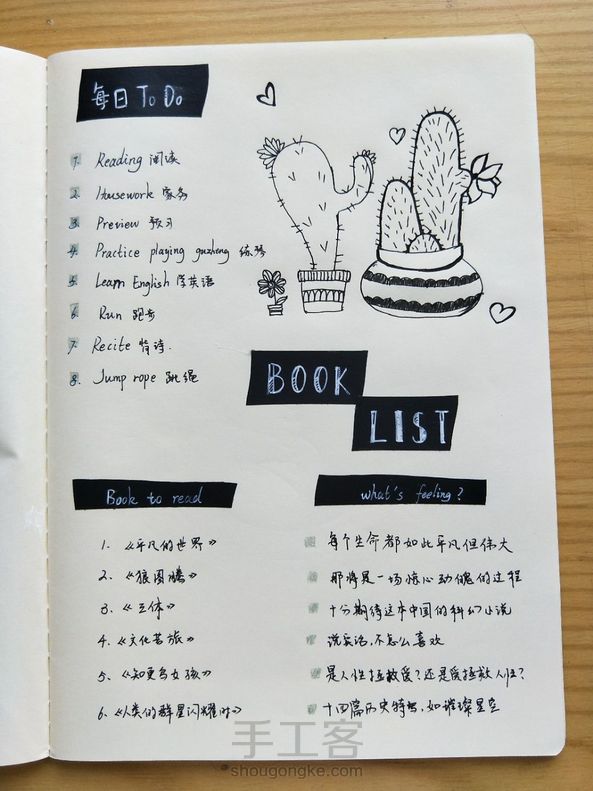 每日 To Do
1. Reading 阅读
2. Housework 家务
3. Preview 预习
4. Practice playing guzheng 练琴
5. Learn English 学英语
6. Run 跑步
7. Recite 背诗.
8. Jump rope 跳绳
BOOK
LIST
Book to read
1. 《平凡的世界》
2. 《狼图腾》
3. 《三体》
4. 《文化苦旅》
5. 《知更鸟女孩》
6. 《人类的群星闪耀时》
what's feeling?
每个生命都如此平凡但伟大
那将是一场惊心动魄的过程
十分期待这本中国的科幻小说
说实话,不怎么喜欢
是人性拯救爱?还是爱拯救人性?
十四篇历史特写,如璀璨星空
手工客
shougongke.com